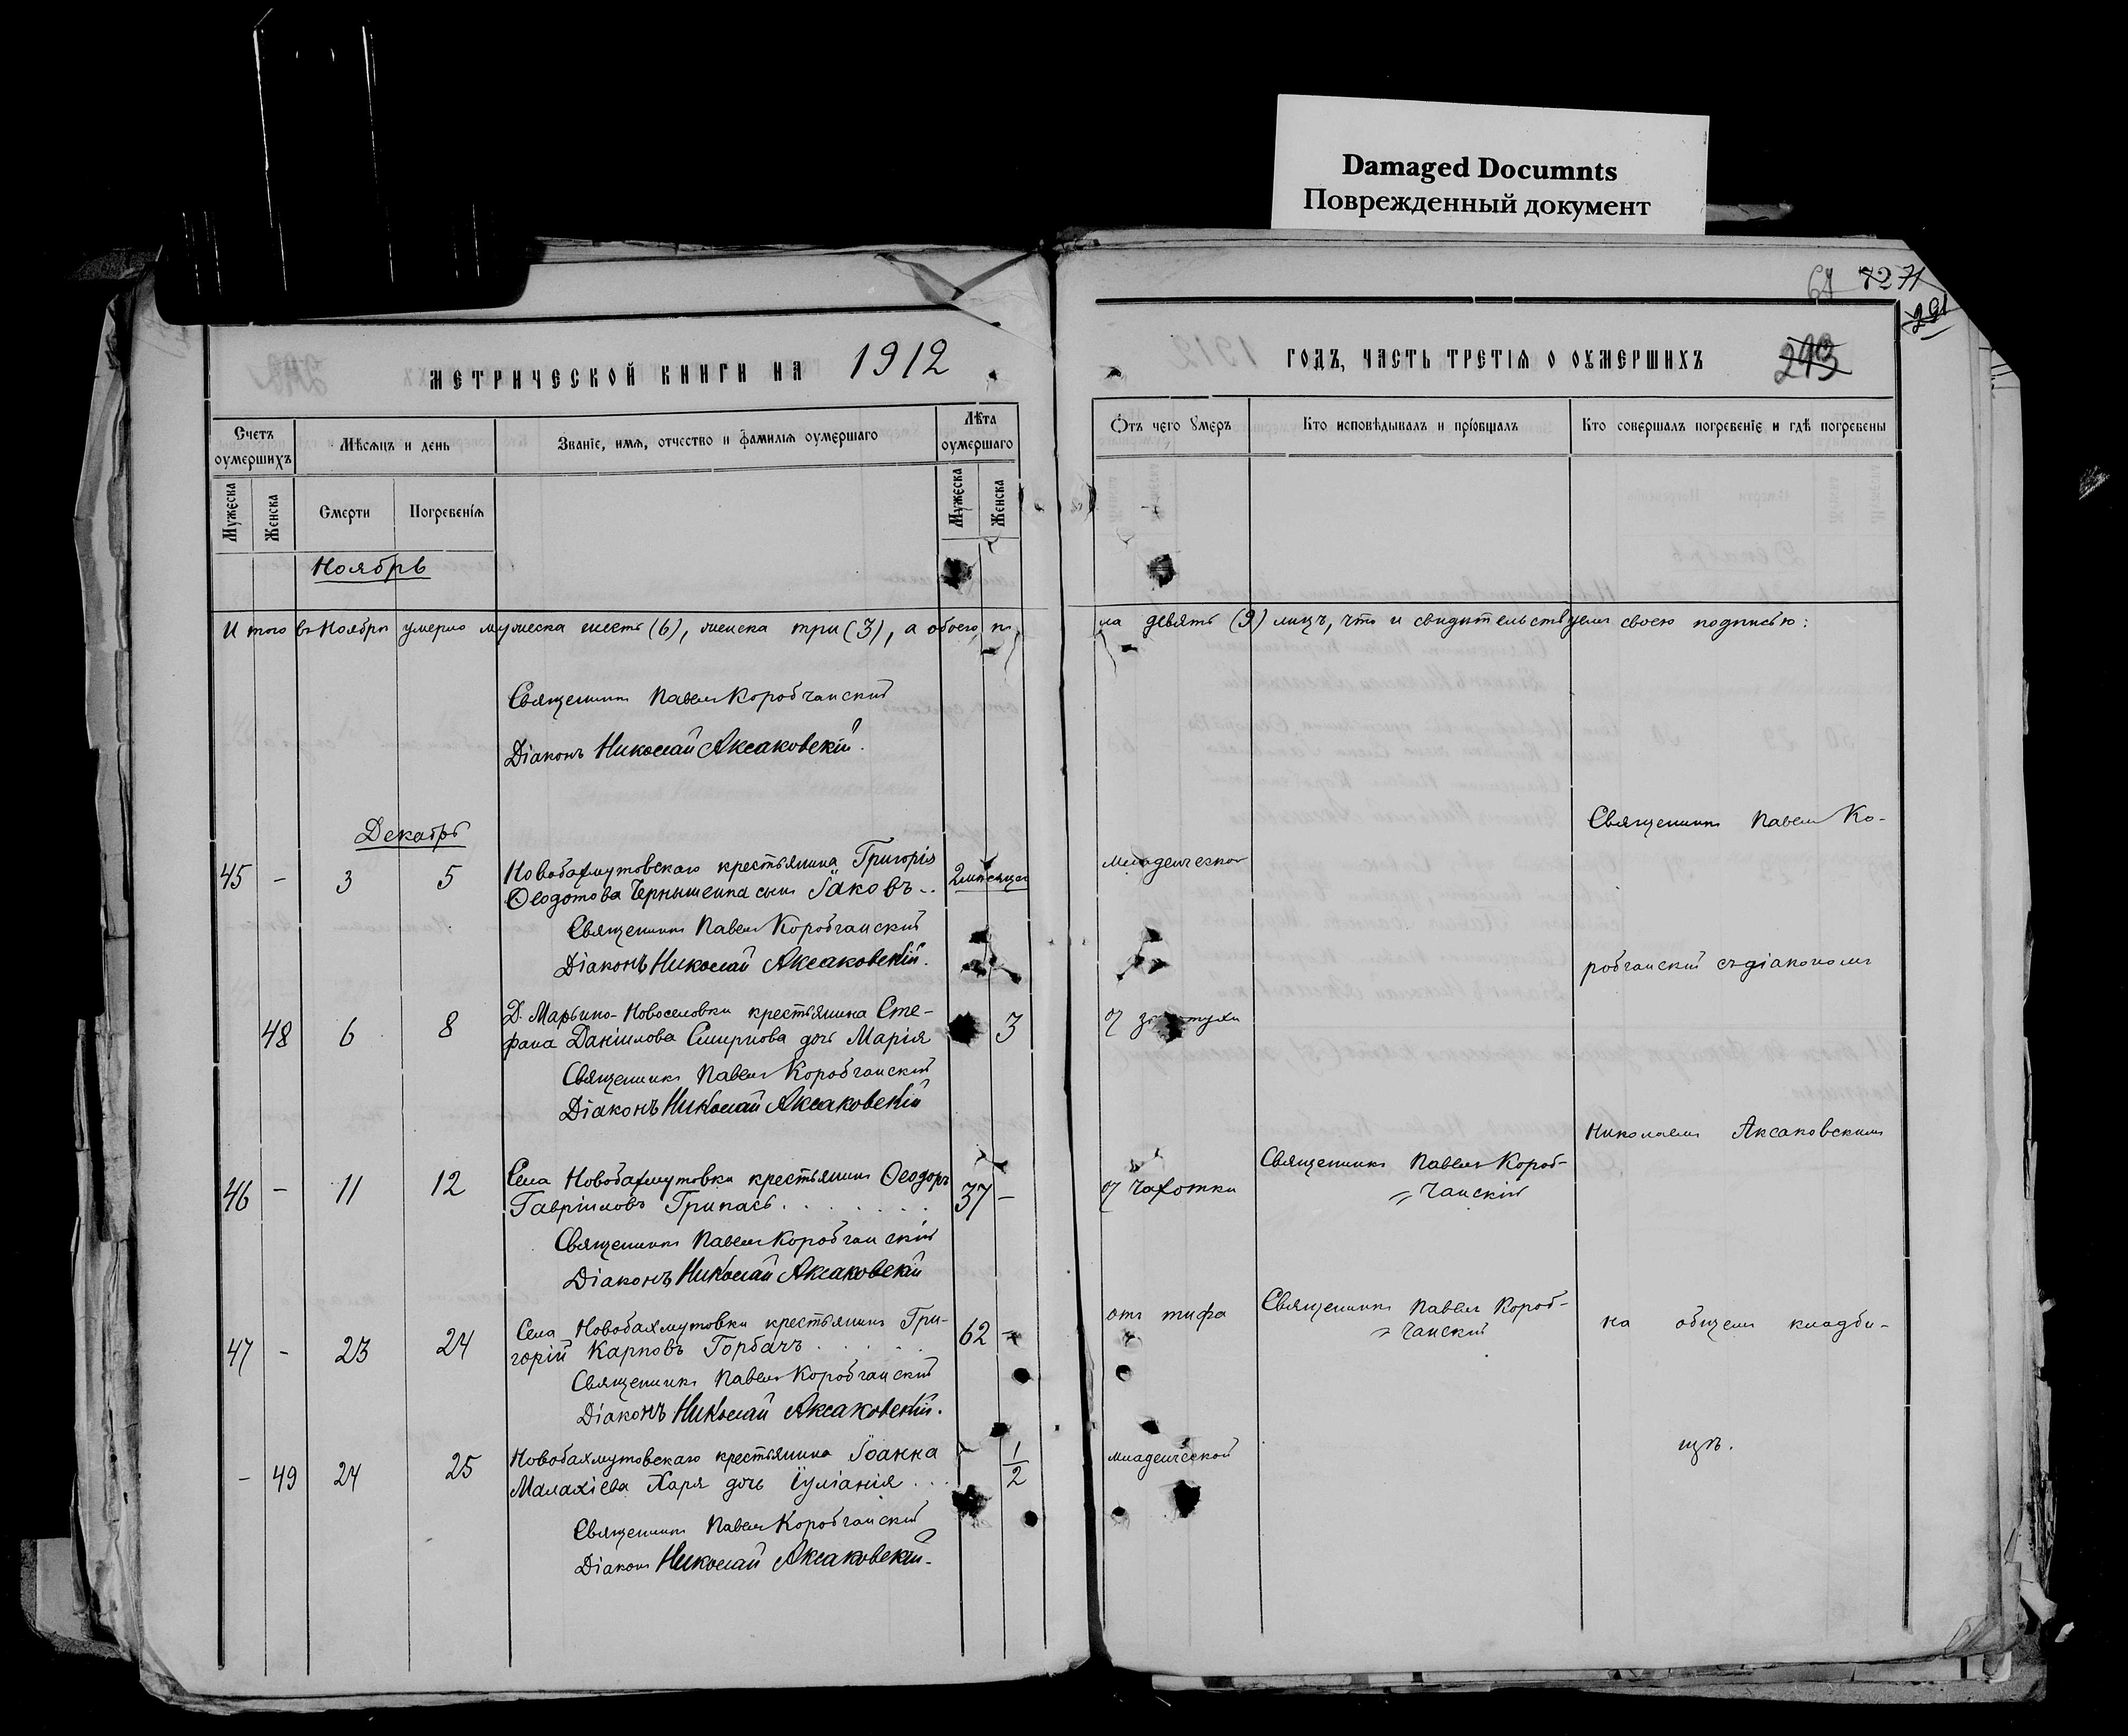 Damaged Documnts
Поврежденный документ
64 72 71
291
МЕТРИЧЕСКОЙ КНИГИ НА 1912
ГОДЪ, ЧАСТЬ ТРЕТІЯ О ОУМЕРШИХЪ 293
Счетъ оумершихъ
Мѣсяцъ и день
Званіе, имя, отчество и фамилія оумершаго
Лѣта оумершаго
Отъ чего оумеръ
Кто исповѣдывалъ и пріобщалъ
Кто совершалъ погребеніе и гдѣ погребены
Мужеска
Женска
Смерти
Погребенія
Мужеска
Женска
Ноябрь
Итого въ Ноябрѣ умерло мужеска шесть (6), женска три (3), а обоего по
ла девять (9) лицъ, что и свидѣтельствуемъ своею подписью:
Священникъ Павелъ Коробчанскій
Діаконъ Николай Аксаковскій.
Декабрь
Священникъ Павелъ Ко-
45 - 3 5 Новобахмутовскаго крестьянина Григорія 2 мѣсяца Младенческой
Ѳеодотова Чернышенка сынъ Іаковъ..
Священникъ Павелъ Коробчанскій
Діаконъ Николай Аксаковскій.
робчанскій съ діакономъ
48 6 8 Д. Марьино-Новоселовки крестьянина Сте- 3 от
фана Даніилова Смирнова дочь Марія
Священникъ Павелъ Коробчанскій
Діаконъ Николай Аксаковскій
Николаемъ Аксаковскимъ
46 - 11 12 Села Новобахмутовки крестьянинъ Ѳеодоръ 37 - от чахотки Священникъ Павелъ Короб-
Гавріиловъ Грипась....... = чанскій
Священникъ Павелъ Коробчанскій
Діаконъ Николай Аксаковскій
47 - 23 24 Села Новобахмутовки крестьянинъ Гри- 62 - отъ тифа Священникъ Павелъ Короб-
горій Карповъ Горбачъ..... = чанскій
на общемъ кладби-
Священникъ Павелъ Коробчанскій
Діаконъ Николай Аксаковскій.
- 49 24 25 Новобахмутовскаго крестьянина Іоанна 1/2 Младенческой
Малахіева Харя дочь Іуліанія...
щѣ.
Священникъ Павелъ Коробчанскій
Діаконъ Николай Аксаковскій.